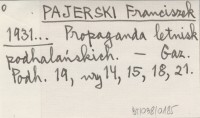 PAJERSKI Franciszek
1931... Propaganda letnisk
podhalańskich. — Gaz.
Podh. 19, wy 14, 15, 18, 21.